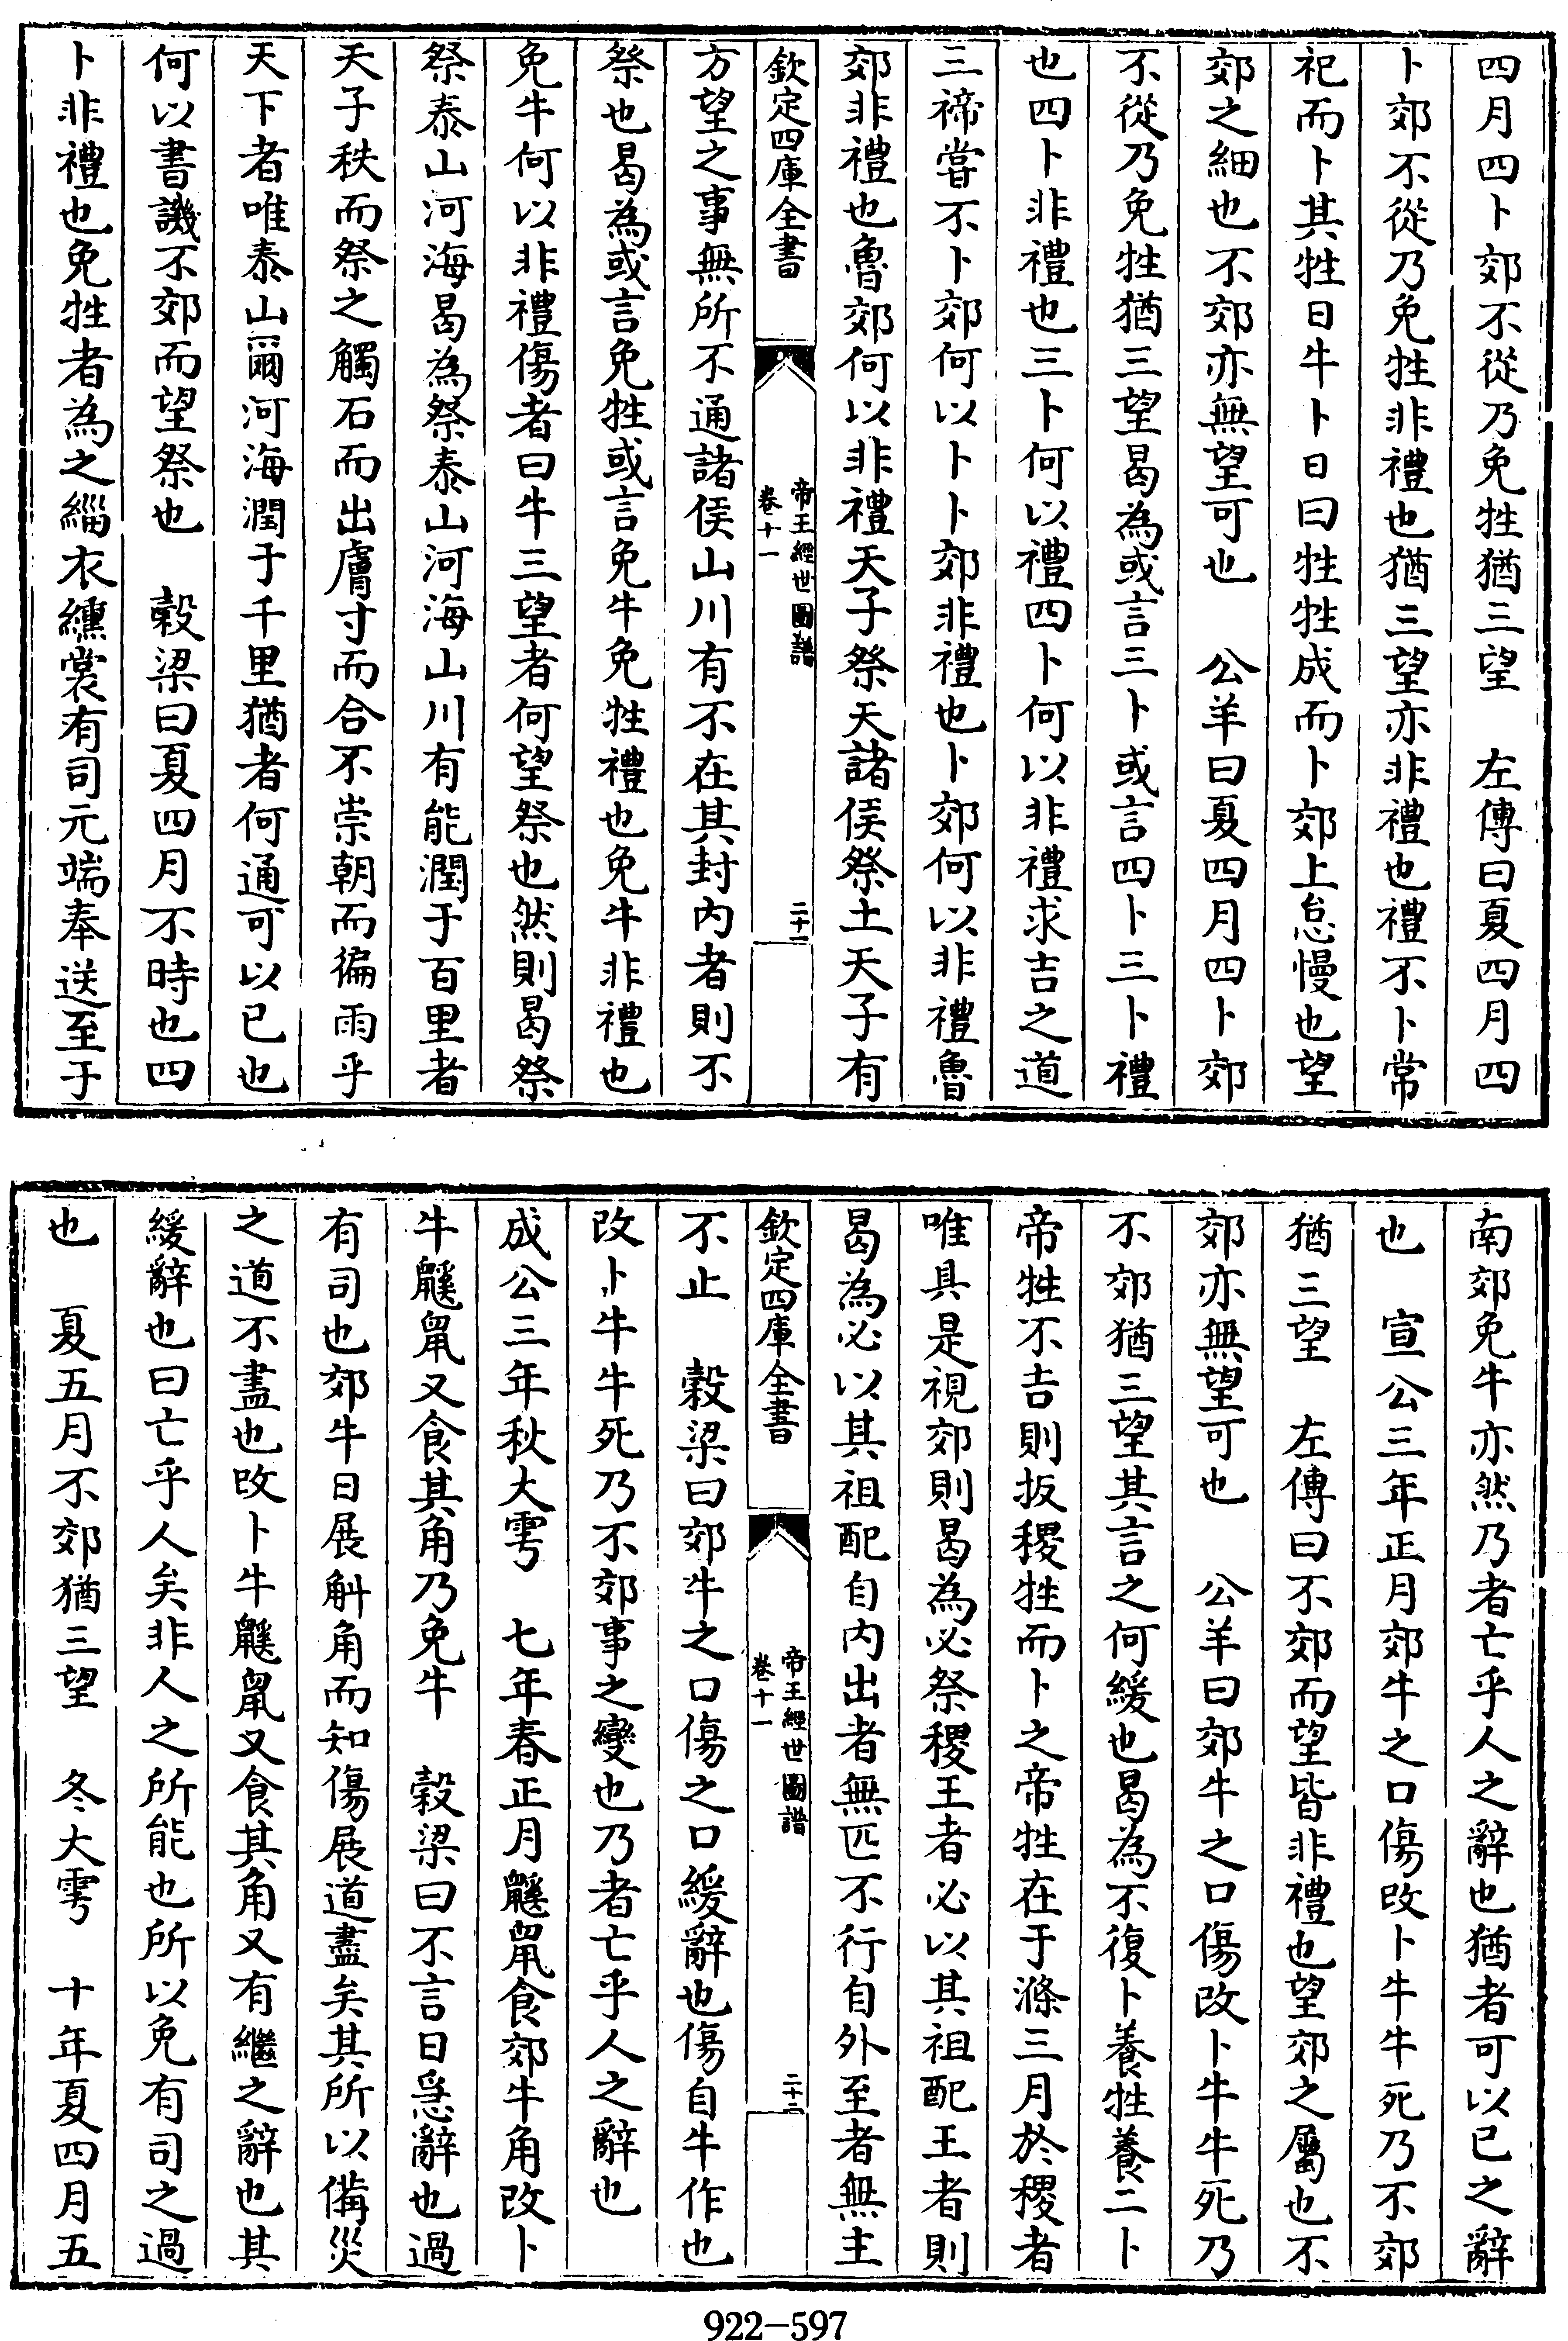 四月四卜郊不從乃免牲猶三望　左傳曰夏四月四
卜郊不從乃免牲非禮也猶三望亦非禮也禮不卜常
祀而卜其牲日牛卜日曰牲牲成而卜郊上怠慢也望
郊之細也不郊亦無望可也　公羊曰夏四月四卜郊
不從乃免牲猶三望曷為或言三卜或言四卜三卜禮
也四卜非禮也三卜何以禮四卜何以非禮求吉之道
三禘嘗不卜郊何以卜卜郊非禮也卜郊何以非禮魯
郊非禮也魯郊何以非禮天子祭天諸侯祭土天子有
欽定四庫全書
帝王經世圖譜
卷十一
二十一
方望之事無所不通諸侯山川有不在其封內者則不
祭也曷為或言免牲或言免牛免牲禮也免牛非禮也
免牛何以非禮傷者曰牛三望者何望祭也然則曷祭
祭泰山河海曷為祭泰山河海山川有能潤于百里者
天子秩而祭之觸石而出膚寸而合不崇朝而徧雨乎
天下者唯泰山爾河海潤于千里猶者何通可以已也
何以書譏不郊而望祭也　穀梁曰夏四月不時也四
卜非禮也免牲者為之緇衣纁裳有司元端奉送至于
南郊免牛亦然乃者亡乎人之辭也猶者可以已之辭
也　宣公三年正月郊牛之口傷改卜牛牛死乃不郊
猶三望　左傳曰不郊而望皆非禮也望郊之屬也不
郊亦無望可也　公羊曰郊牛之口傷改卜牛牛死乃
不郊猶三望其言之何緩也曷為不復卜養牲養二卜
帝牲不吉則扳稷牲而卜之帝牲在于滌三月於稷者
唯具是視郊則曷為必祭稷王者必以其祖配王者則
曷為必以其祖配自內出者無匹不行自外至者無主
欽定四庫全書
帝王經世圖譜
卷十一
二十二
不止　穀梁曰郊牛之口傷之口緩辭也傷自牛作也
改卜牛牛死乃不郊事之變也乃者亡乎人之辭也
成公三年秋大雩　七年春正月鼷鼠食郊牛角改卜
牛鼷鼠又食其角乃免牛　穀梁曰不言日急辭也過
有司也郊牛日展斛角而知傷展道盡矣其所以備災
之道不盡也改卜牛鼷鼠又食其角又有繼之辭也其
緩辭也曰亡乎人矣非人之所能也所以免有司之過
也　夏五月不郊猶三望　冬大雩　十年夏四月五
922-597